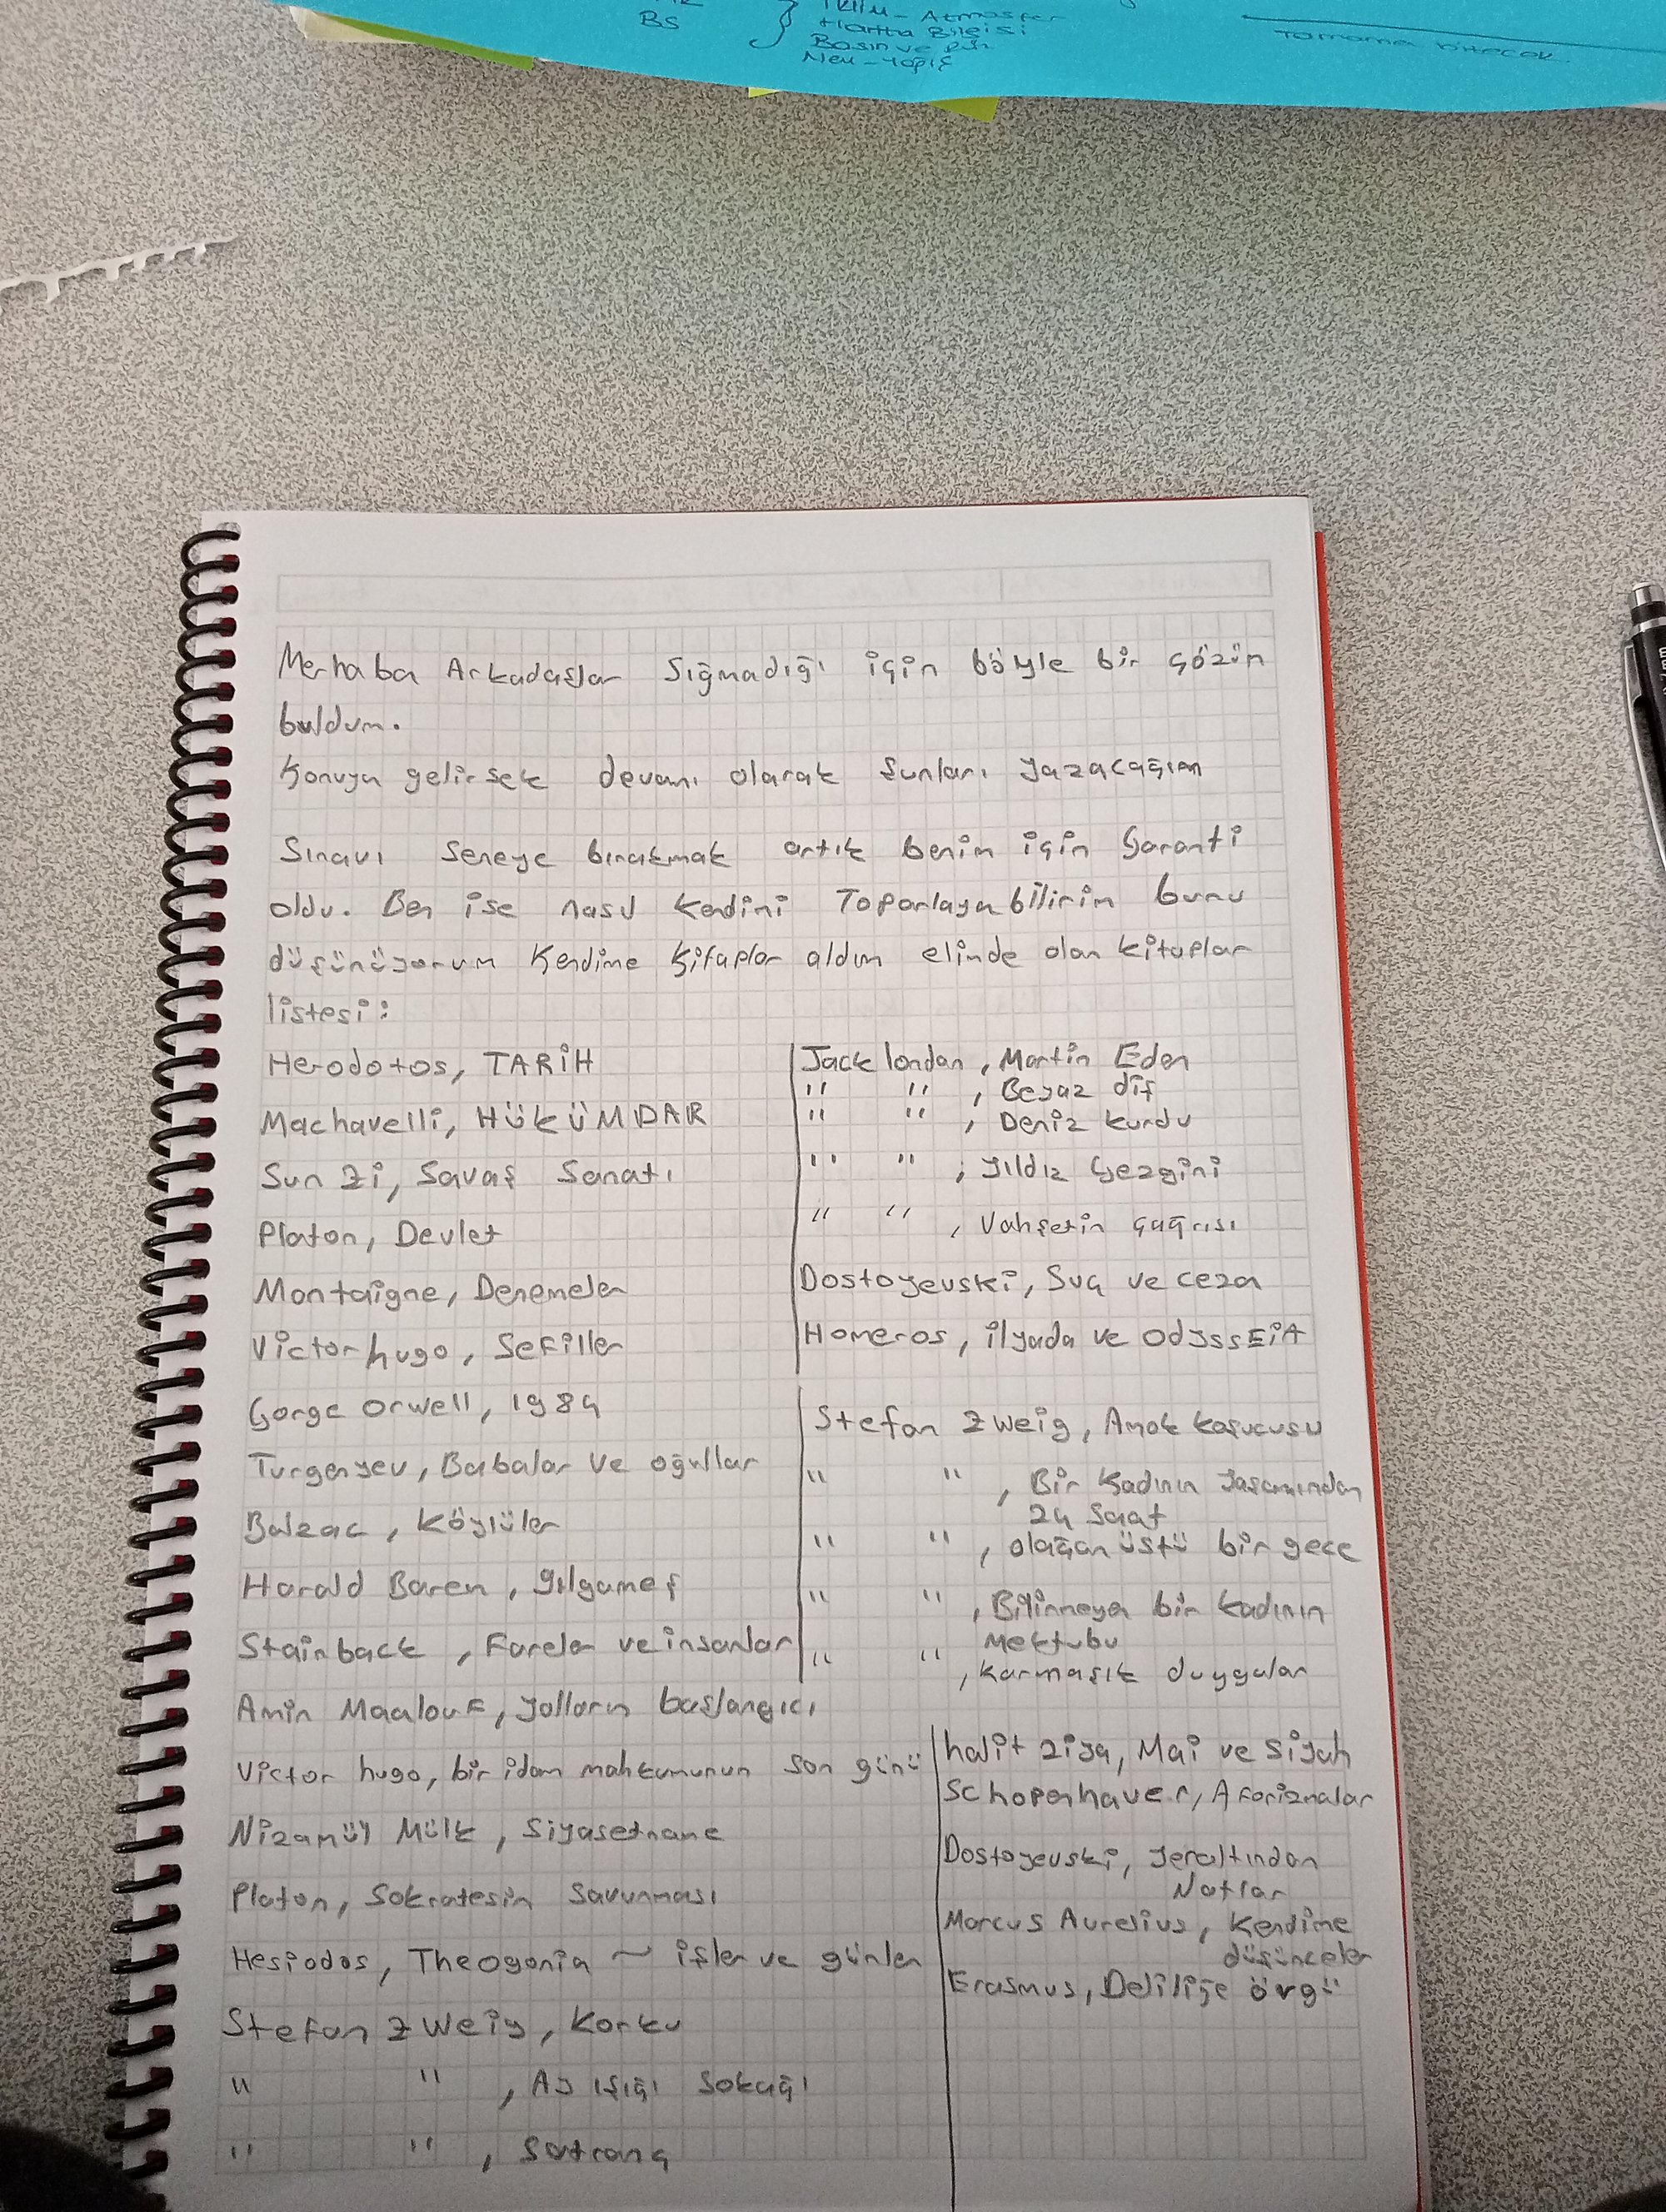 BS
Harita Bilgisi
Basınve
Tamamen bitecek
Merhaba Arkadaşlar Sığmadığı için böyle bir çözüm
buldum.
Konuya gelirsek devamı olarak Şunları yazacağım
Sınavı Seneye bırakmak artık benim için Garanti
oldu. Ben ise nasıl Kendimi Toparlayabilirim bunu
düşünüyorum Kendime Kitaplar aldım elimde olan kitaplar
listesi:
Herodotos, TARİH
Machavelli, HÜKÜMDAR
Sun Zi, Savaş Sanatı
Platon, Devlet
Montaigne, Denemeler
Victor hugo, Sefiller
Gorge Orwell, 1984
Turgenyev, Babalar ve oğullar
Balzac, Köylüler
Harald Baren, gılgameş
Stainback, Fareler ve insanlar
Amin Maalouf, yolların başlangıcı
Victor hugo, bir idam mahkumunun son günü
Nizamül Mülk, Siyasetname
Platon, Sokratesin Savunması
Hesiodos, Theogonia ~ işler ve günler
Stefan Zweig, Korku
" ", Ay ışığı Sokağı
" ", Satranç
Jack london, Martin Eden
" ", Beyaz diş
" ", Deniz kurdu
" ", yıldız Gezgini
" ", Vahşetin çağrısı
Dostoyevski, Suç ve ceza
Homeros, ilyada ve ODYSSEİA
Stefan Zweig, Amok koşucusu
" ", Bir Kadının Yaşamından
24 Saat
" ", olağanüstü bir gece
" ", Bilinmeyen bir kadının
Mektubu
" ", karmaşık duygular
halit ziya, Mai ve Siyah
Schopenhauer, Aforizmalar
Dostoyevski, yeraltından
Notlar
Marcus Aurelius, Kendime
düşünceler
Erasmus, Deliliğe övgü